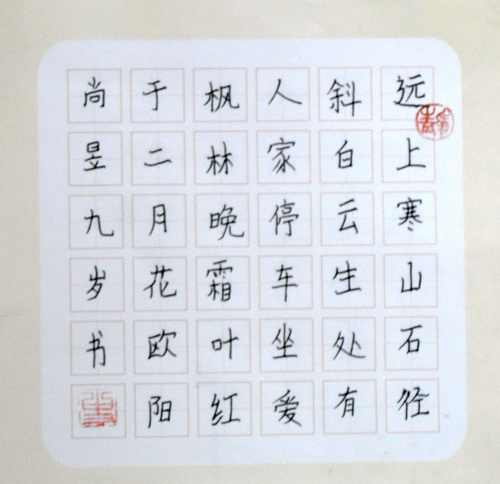 远上寒山石径
斜白云生处有
人家停车坐爱
枫林晚霜叶红
于二月花欧阳
尚昱九岁书